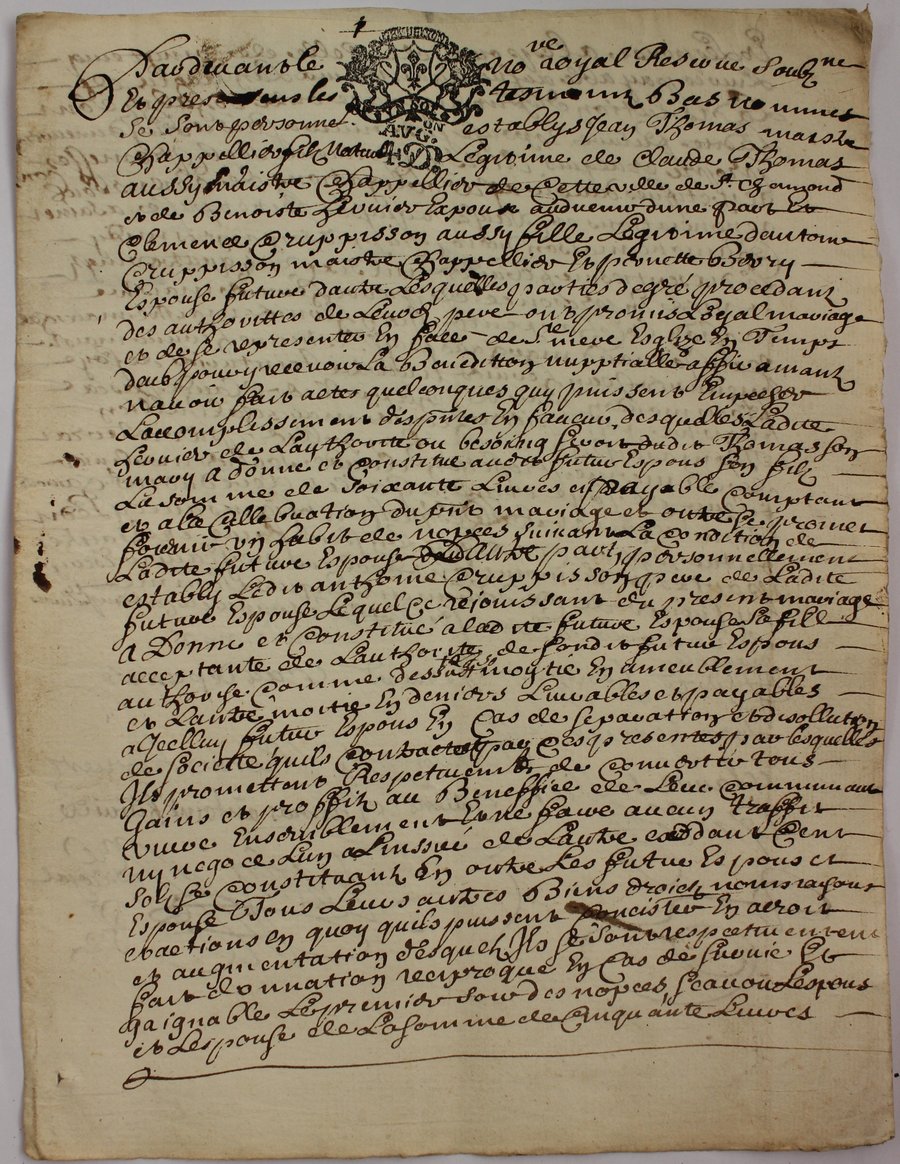 Pardevant le no.re royal Reservé soubz.ne
Et presens les tesmoins Bas nommes
Se sont personne. establys Jean Thomas maistre
Chappellier fils naturel Legitime de Claude Thomas
aussy maistre Chappellier de Cette ville de St Chamond
et de Benoiste Espoux advenir dune part Et
Clemence Cruppisson aussy fille Legitime dantoine
Cruppisson maistre Chappellier Et pernette
Espouse future dautre Lesquelles parties de gré procedant
des authorittes de Leurs pere ont promis Loyal mariage
et de se representer En face de Ste mere Esglize En Temps
deub pour y recevoir La Benediction nupptialle affirmant
navoir fait actes quelconques quy puissent Empecher
Laccomplissement des pntes En faveur desquelles Ladite
de Lauthorité ou besoing seroit dudit Thomas son
mary a Donne et constitue audit futur Espous son fils
La somme de Soixante Livres payable comptant
et a la Cellebration du pnt mariage et outre se promet
fournir un habit de nopces suivant La condition de
Ladite future Espouse dautre part personnellement
estably Ledit anthoine Cruppisson pere de Ladite
future Espouse Lequel Ce rejouissant du present mariage
a Donné et Constitué a ladite future Espouse sa fille
acceptante de Lauthorité de sondit futur Espous
authorise comme dessus moytie En ameublement
et Lautre moitie En deniers Livrables et payables
a Jcelluy futur Espous En Cas de separation et disollution
de Societté quils Contractent par Ces presentes par Lesquelles
Jls promettent Respectivement de convertir tous
gains et proffits au Beneffice de Leur communaut
vivre Ensemblement Et ne faire aucun traffit
ny negoce Lun a Linsceu de Lautre Cent
Sols se Constituant En outre Les futur Espous et
Espouse Tous Leurs autres Biens droits noms raisons
et actions en quoy quils puissent Concister En acroit
et augmentation desquels Jls se sont respectivement
fait donnation reciproque En Cas de survie Et
gaignable Le premier jour des nopces Scavoir Lespous
et Lespouse de La somme de Cinquante Livres